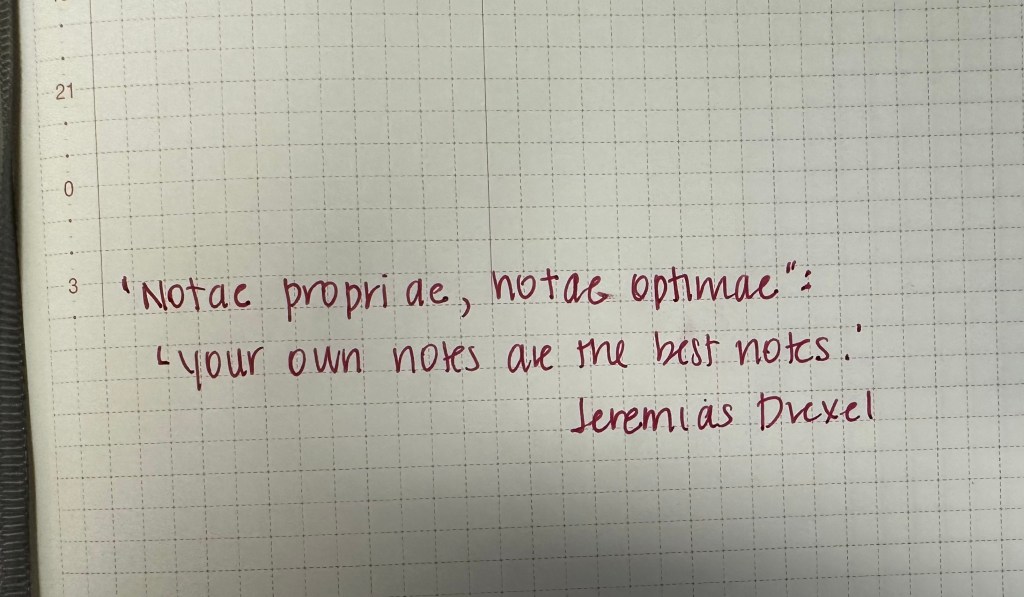 21
0
3
'Notae propriae, notae optimae":
└your own notes are the best notes.'
Jeremias Drexel